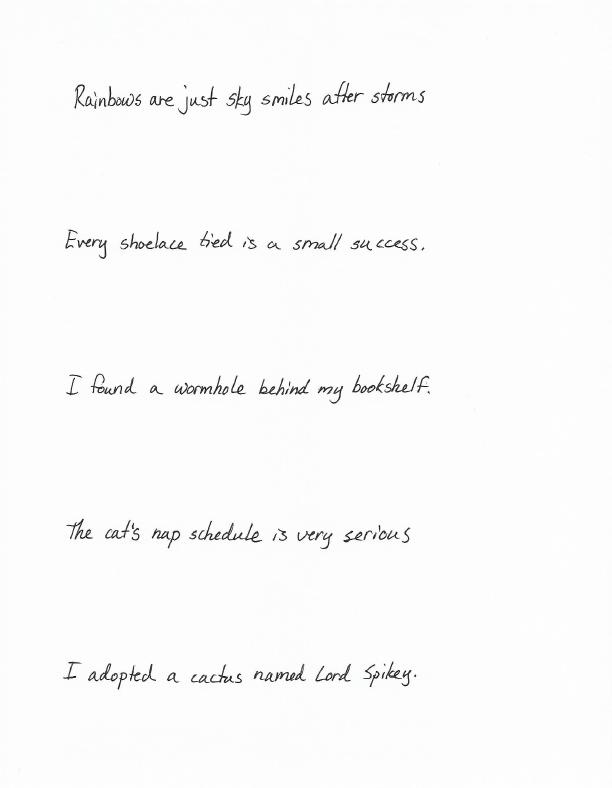 Rainbows are just sky smiles after storms
Every shoelace tied is a small success.
I found a wormhole behind my bookshelf.
The cat's nap schedule is very serious
I adopted a cactus named Lord Spikey.